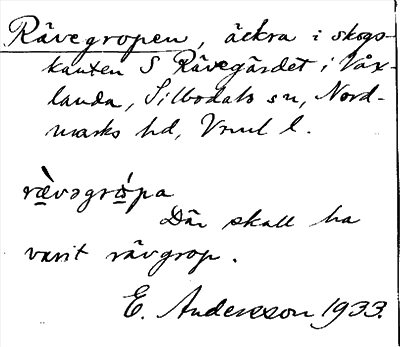 Rävegropen, äckra i skogs-
kanten S Rävegärdet i Våx-
landa, Silbodals sn, Nord-
marks hd, Vrml l.
rævogrópa
Där skall ha
varit rävgrop.
E. Andersson 1933.